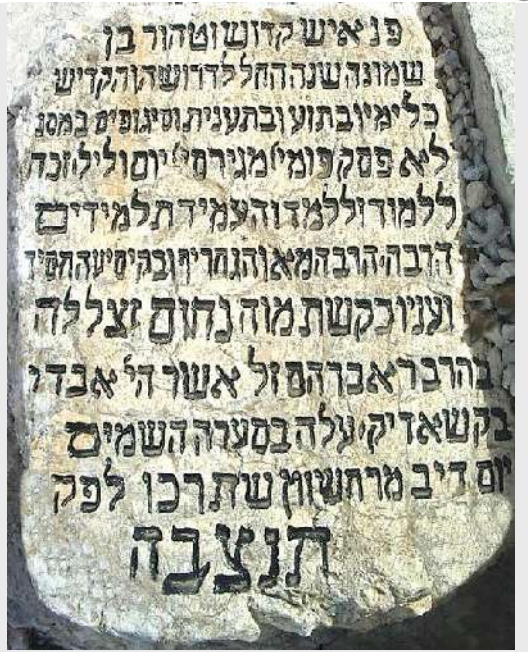 פנ איש קדוש וטהור בן
שמונה שנה החל לדרוש הוהקדיש
כל ימיו בתוע ובתענית וסיגופים במסנ
לא פסק פומי׳ מגירסי׳ יום ולילו זכה
ללמוד וללמד והעמיד תלמידים
הרבה הרבה מאו הגחריף ובקי סיע החסיד
ועניו כקשת מוה נחום זצללה
בהרב ר אברהם זל אשר הי׳ אבדי
בקשאדיק׳ עלה בסערה השמים
יום די ב מרחשוון שתרכו לפק
תנצבה